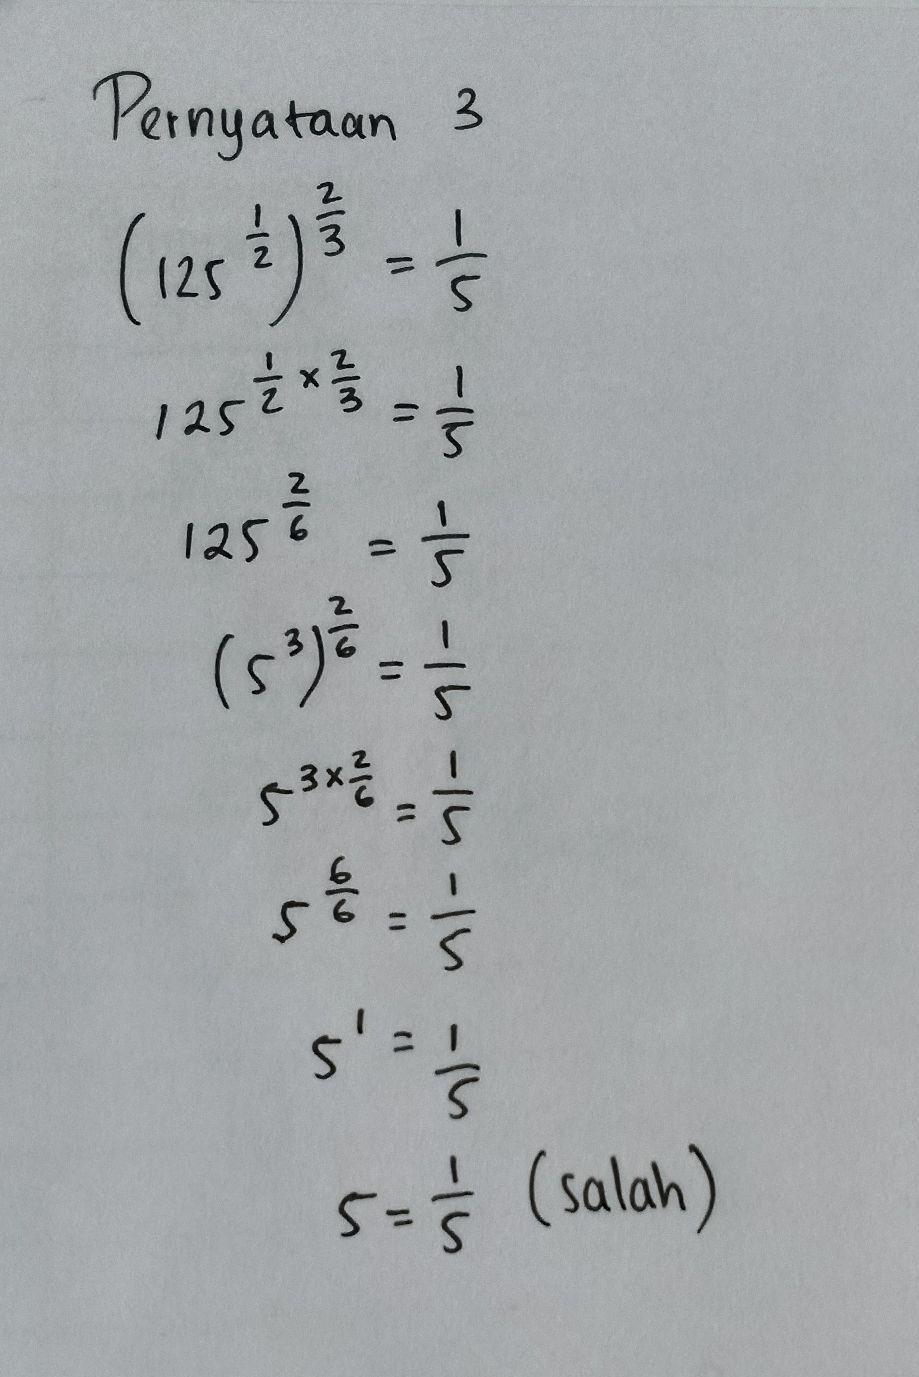 Pernyataan 3
(125^{1/2})^{2/3} = 1/5
125^{1/2 × 2/3} = 1/5
125^{2/6} = 1/5
(5^3)^{2/6} = 1/5
5^{3×2/6} = 1/5
5^{6/6} = 1/5
5^1 = 1/5
5 = 1/5 (salah)